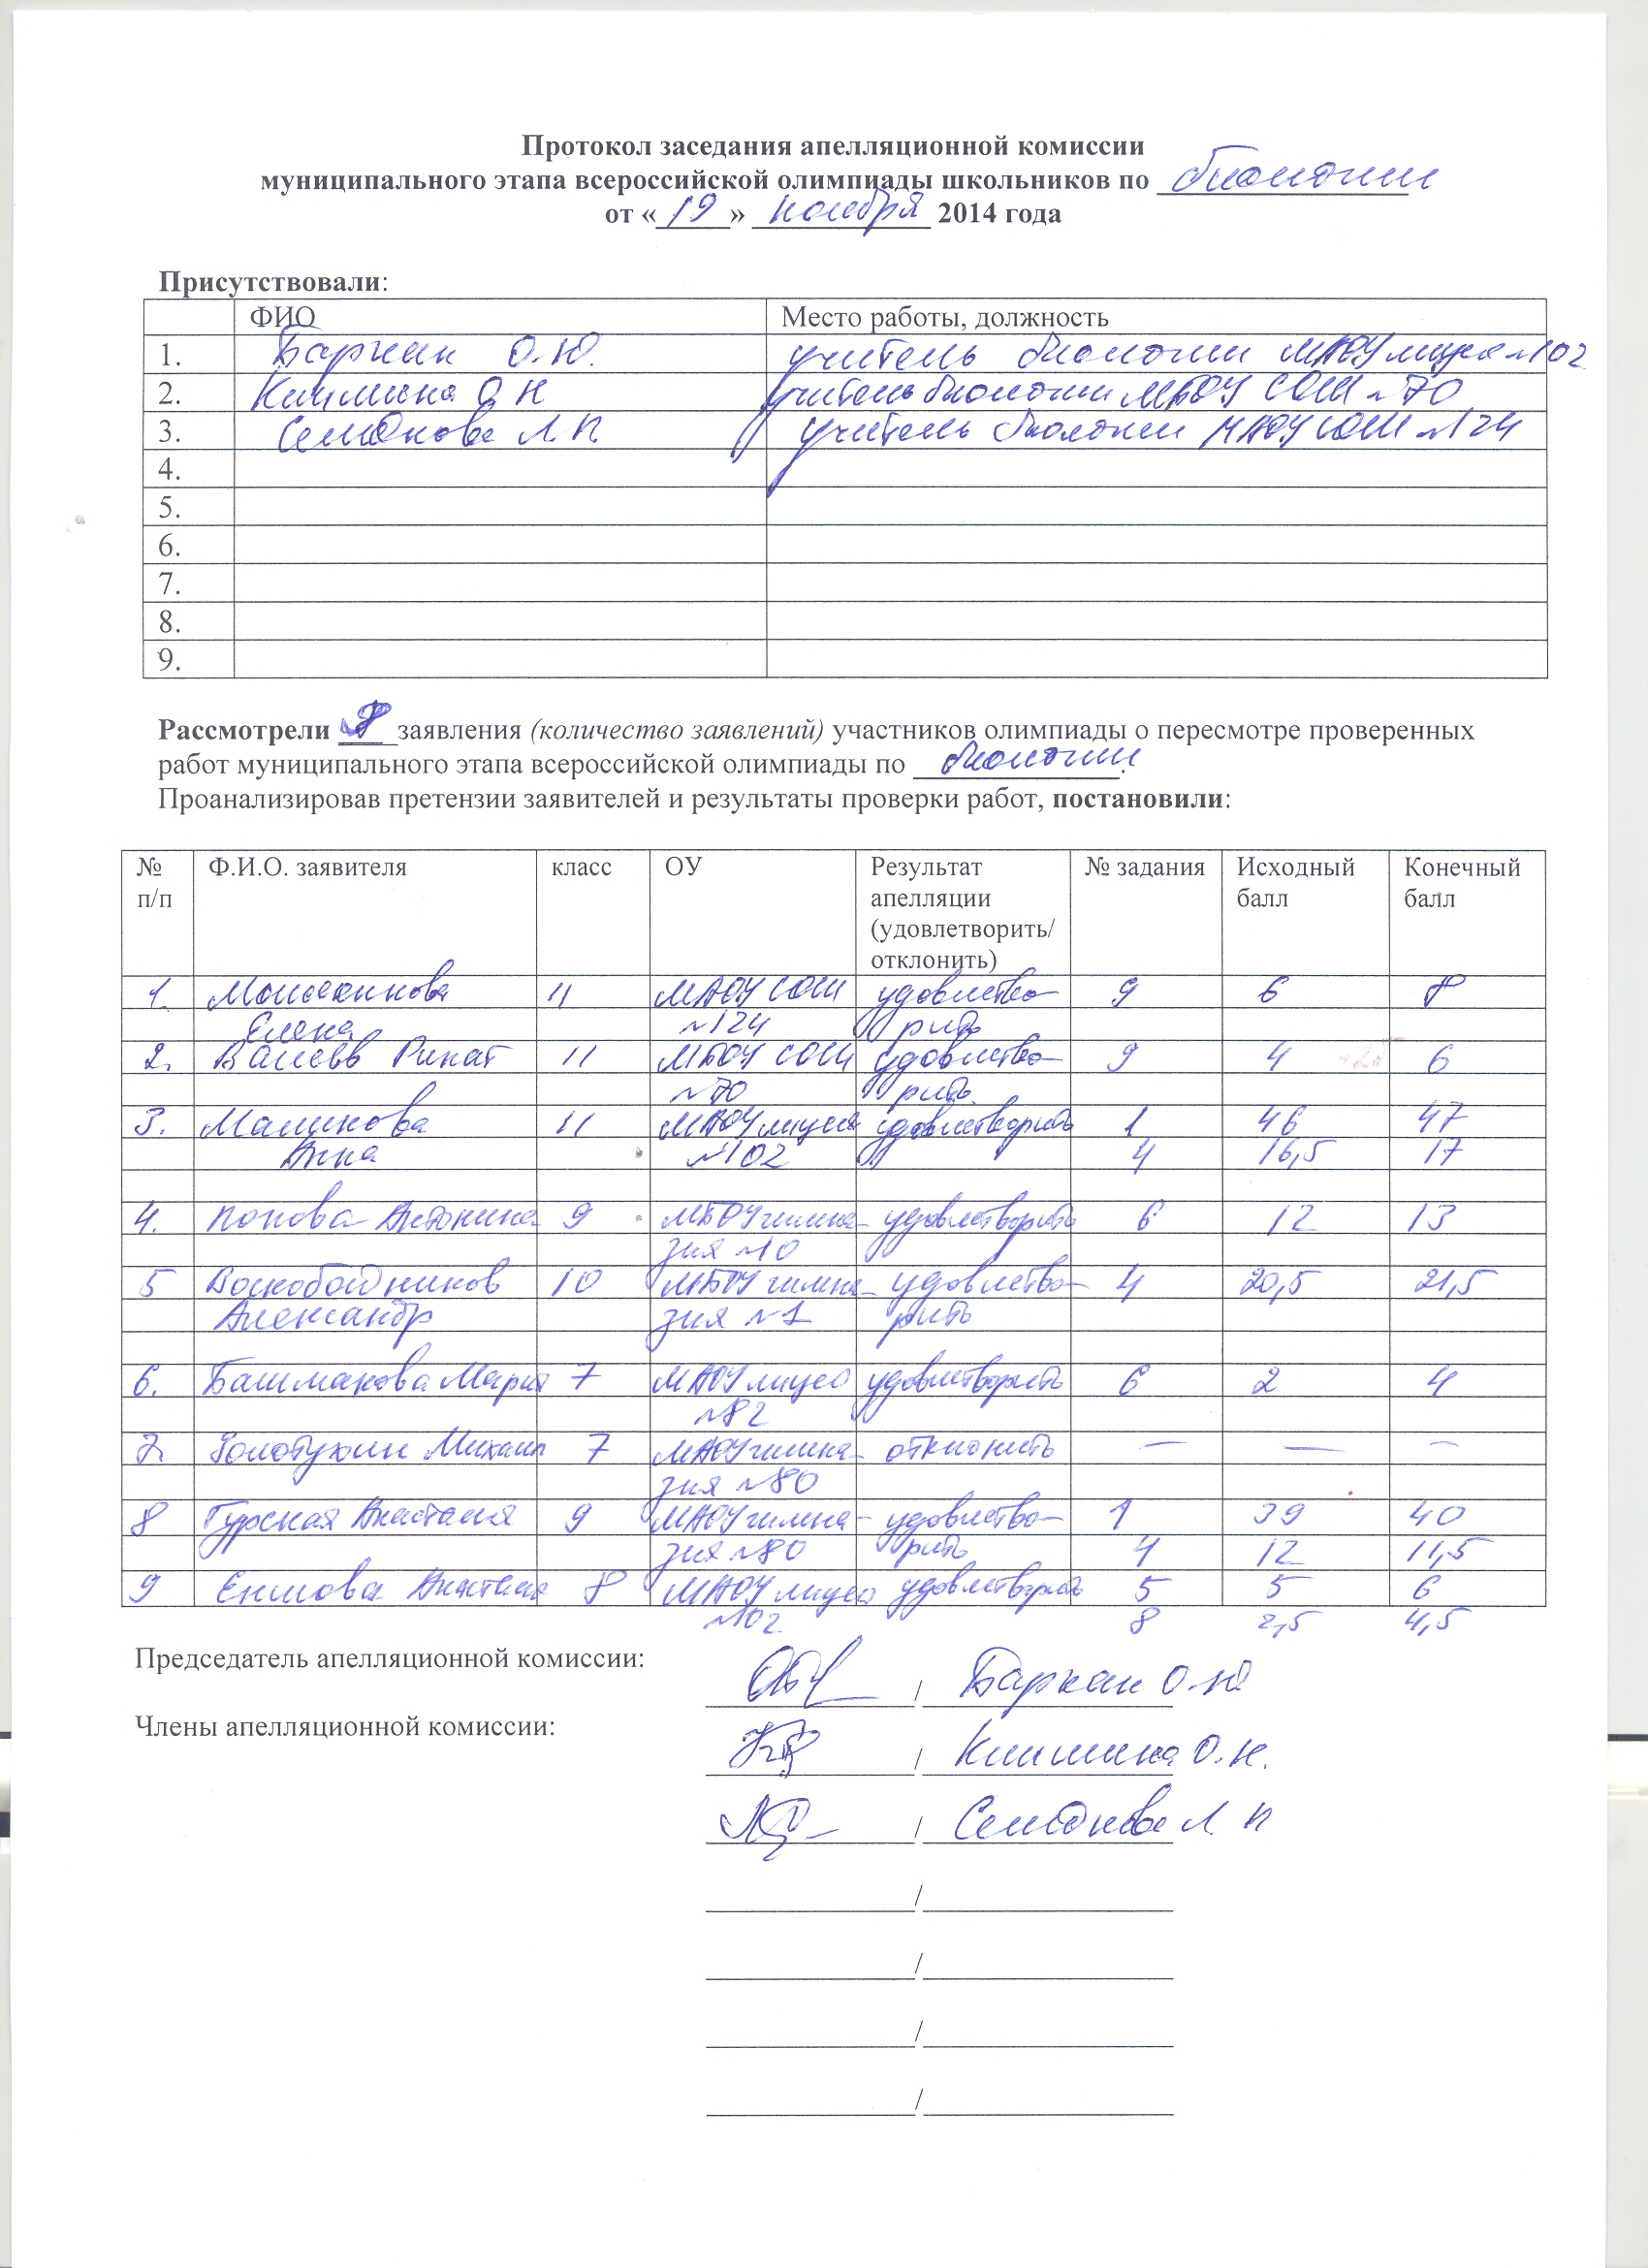 Протокол заседания апелляционной комиссии
муниципального этапа всероссийской олимпиады школьников по биологии
от «19» ноября 2014 года
Присутствовали:
ФИО Место работы, должность
1. Баркан О.Ю. учитель биологии МАОУ лицея №102
2. Климина О Н учитель биологии МБОУ СОШ №70
3. Семёнова Л П учитель биологии МАОУ СОШ №124
4.
5.
6.
7.
8.
9.
Рассмотрели заявления (количество заявлений) участников олимпиады о пересмотре проверенных
работ муниципального этапа всероссийской олимпиады по биологии.
Проанализировав претензии заявителей и результаты проверки работ, постановили:
№ Ф.И.О. заявителя класс ОУ Результат № задания Исходный Конечный
п/п апелляции балл балл
(удовлетворить/
отклонить)
1. 11 МАОУ СОШ удовлетво- 9 6 8
Елена №124 рить
2. Валеев Ринат 11 МБОУ СОШ удовлетво- 9 4 6
№70 рить
3. Маликова 11 МАОУ лицей удовлетворить 1 46 47
Анна №102 4 16,5 17
4. Попова Антонина 9 МБОУ гимна- удовлетворить 6 12 13
зия №10
5 Воскобойников 10 МБОУ гимна- удовлетво- 4 20,5 21,5
Александр зия №1 рить
6. Башмакова Мария 7 МАОУ лицей удовлетворить 6 2 4
№82
7. Золотухин Михаил 7 МАОУ гимна- отклонить — — —
зия №80
8 Гурская Анастасия 9 МАОУ гимна- удовлетво- 1 39 40
зия №80 рить 4 12 11,5
9 Анастасия 8 МАОУ лицей удовлетворить 5 5 6
№102 8 2,5 4,5
Председатель апелляционной комиссии:
/ Баркан О.Ю
Члены апелляционной комиссии:
/ Климина О.Н.
/ Семёнова Л. П
/
/
/
/